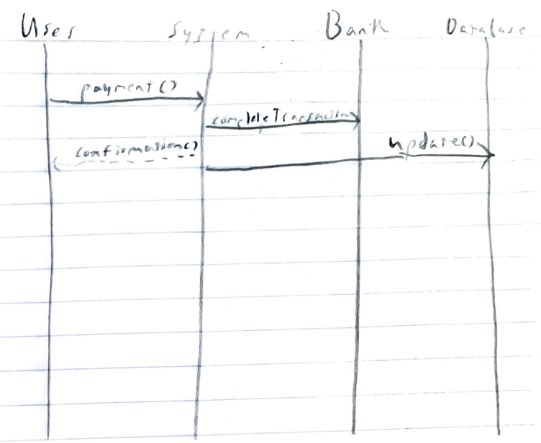 User System Bank Database
payment()
completeTransaction
confirmation() update()